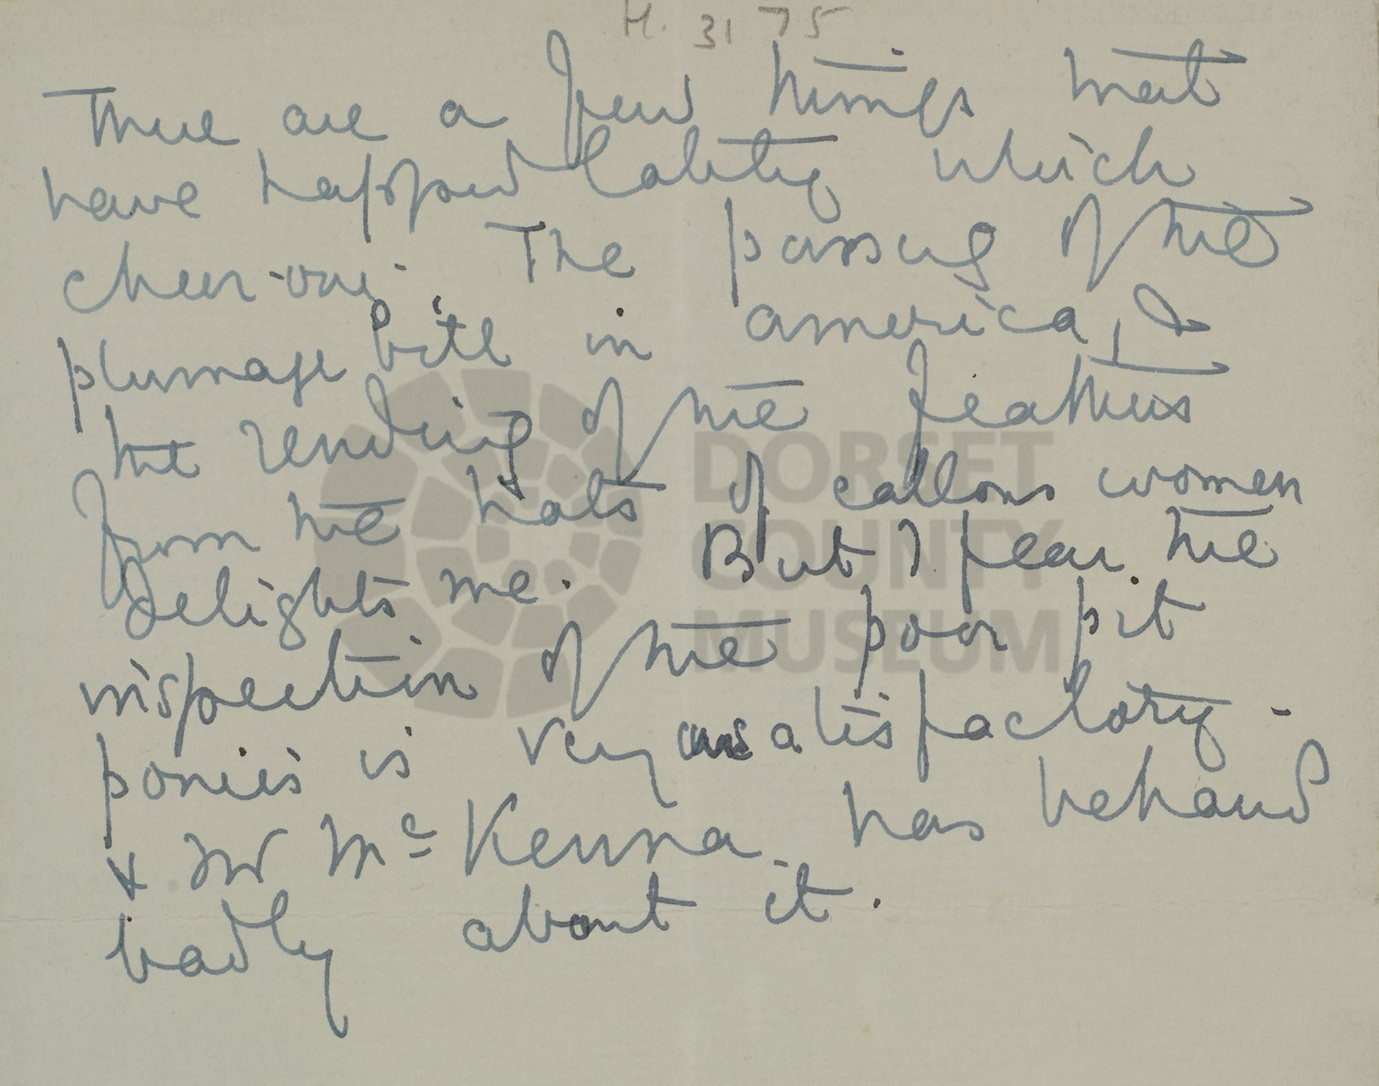 H. 3175
There are a few things that
have happened lately which
cheer one. The passing of the
plumage bill in America, &
the rending of the feathers
from the hats of callous women
delights me. But I fear the
inspection of the poor pit
ponies is very unsatisfactory -
& Mr McKenna has behaved
badly about it.
DORSET
COUNTY
MUSEUM